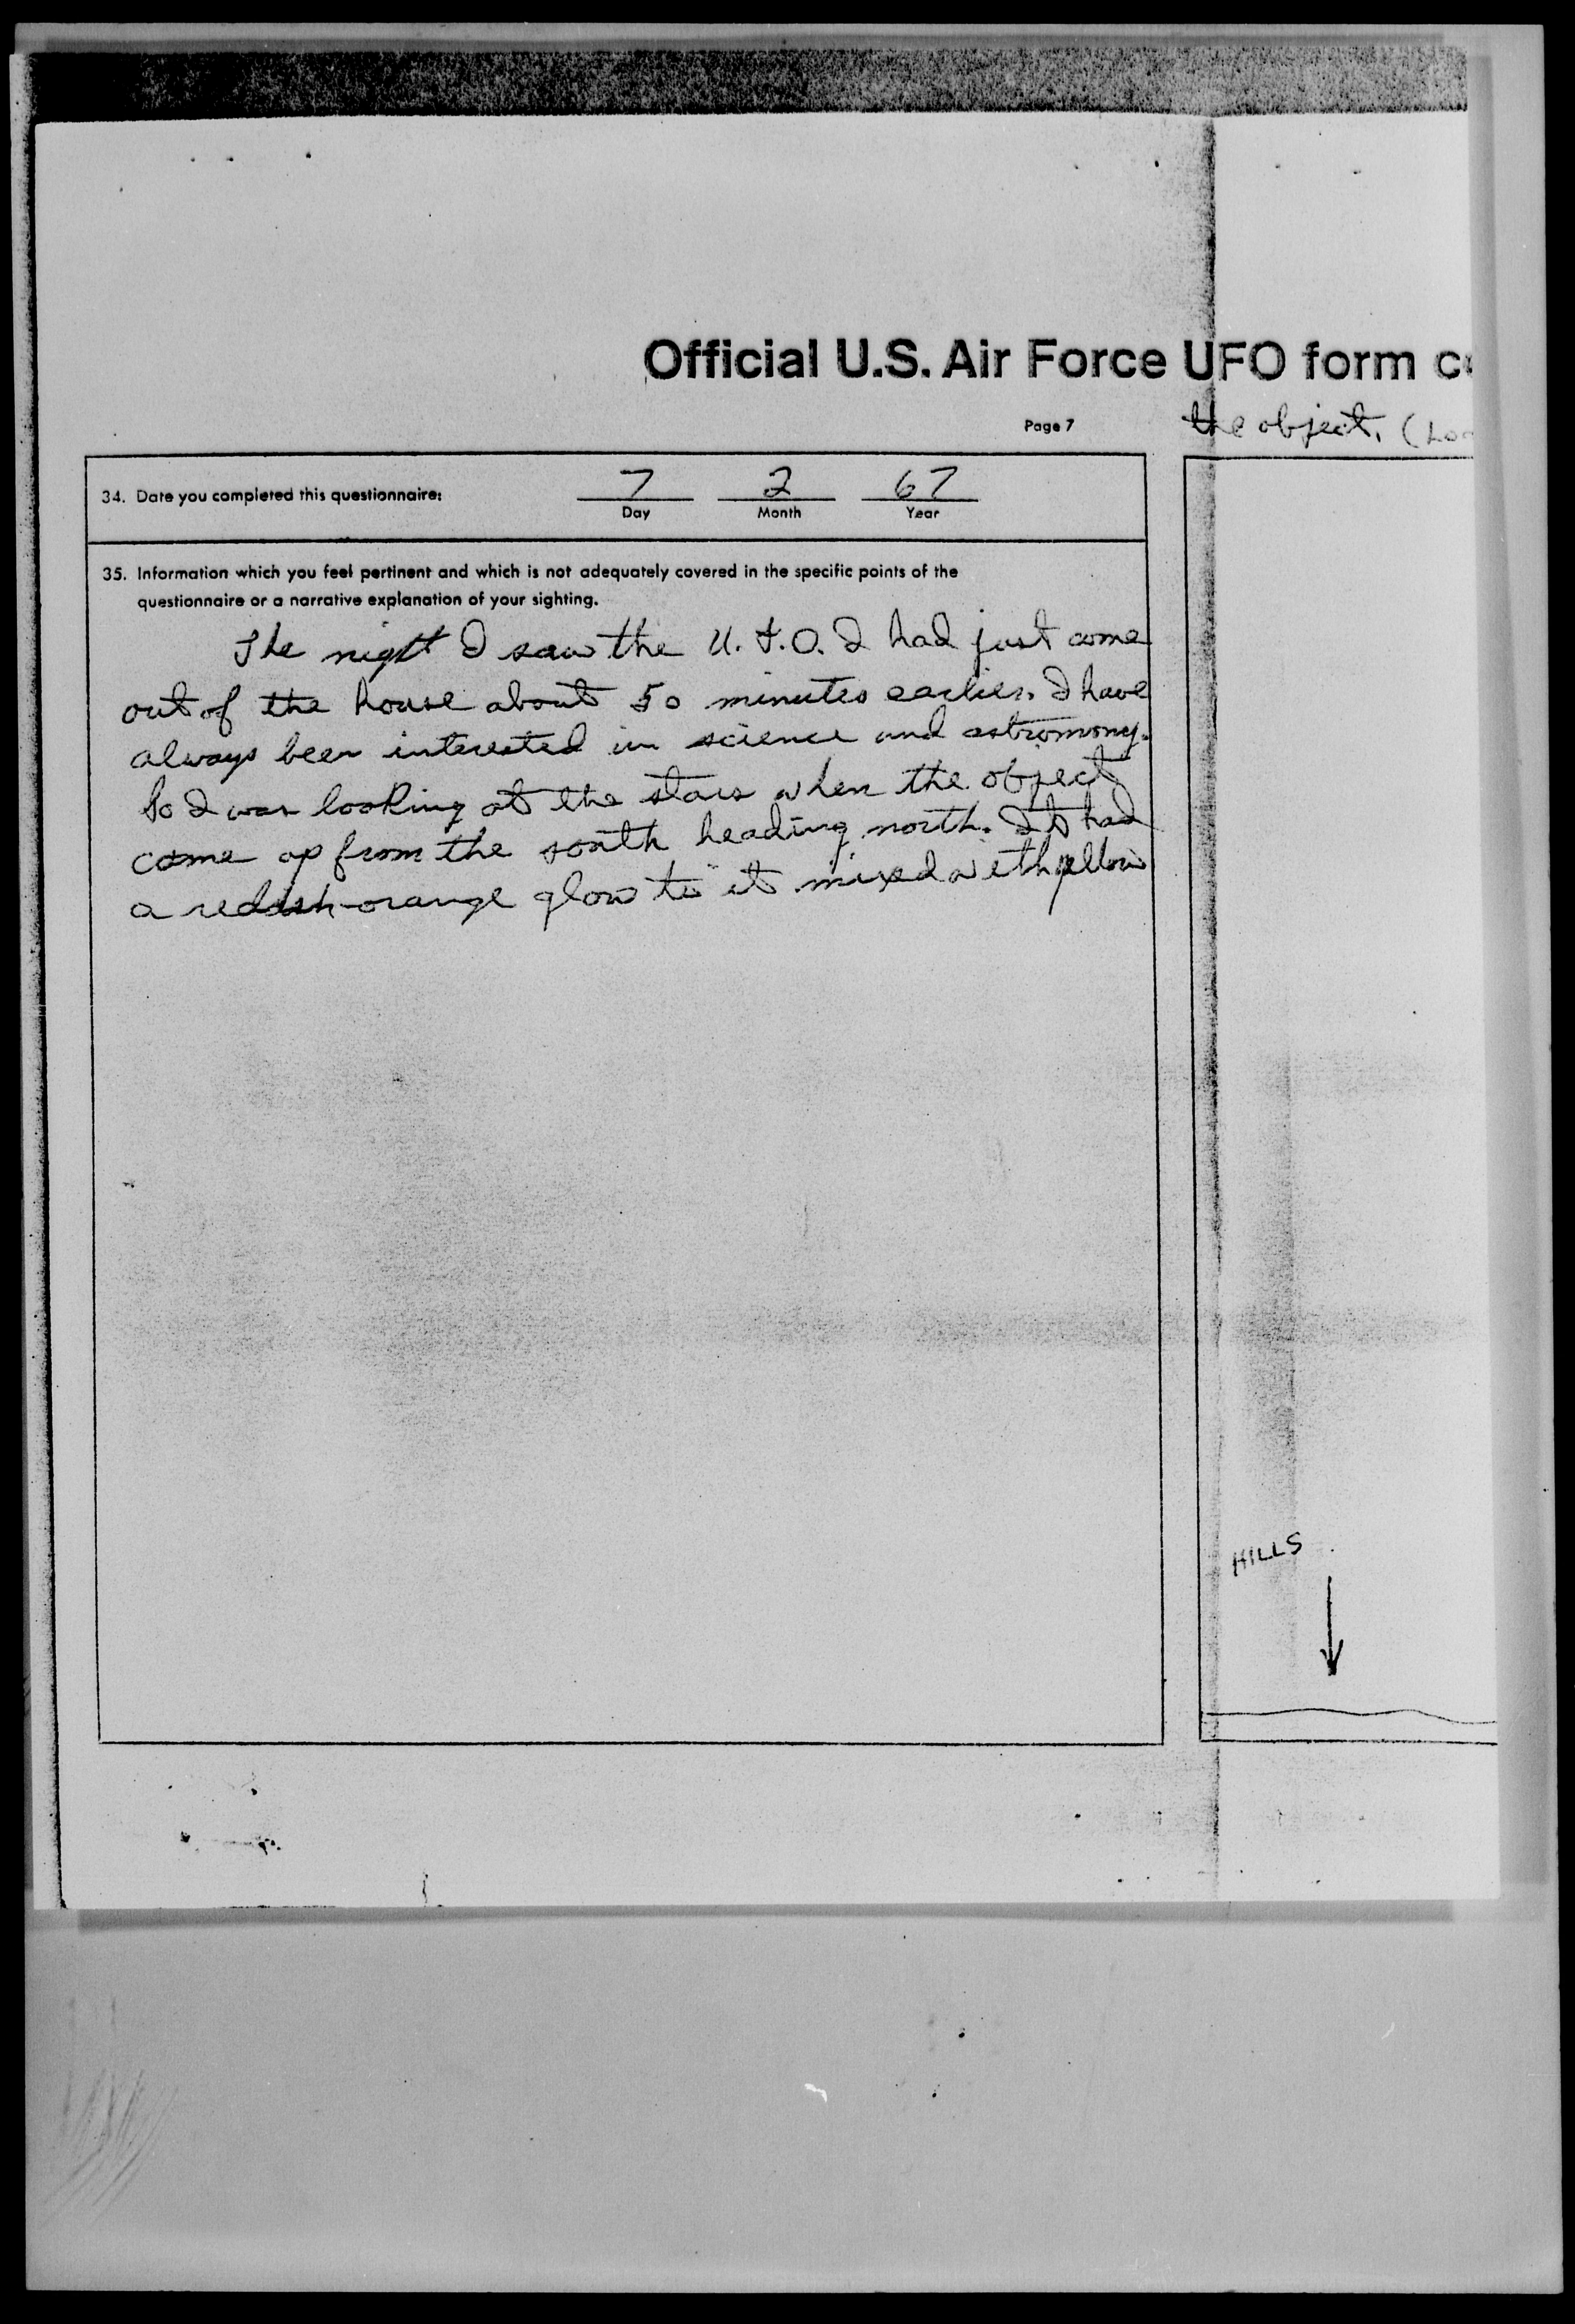 Official U.S. Air Force UFO form c
Page 7
the object. (Loo
34. Date you completed this questionnaire: 7 2 67
Day Month Year
35. Information which you feel pertinent and which is not adequately covered in the specific points of the
questionnaire or a narrative explanation of your sighting.
The night I saw the U.F.O. I had just come
out of the house about 50 minutes earlier. I have
always been interested in science and astromony.
So I was looking at the stars when the object
come up from the south heading north. It had
a redish-orange glow to it mixed with yellow
HILLS